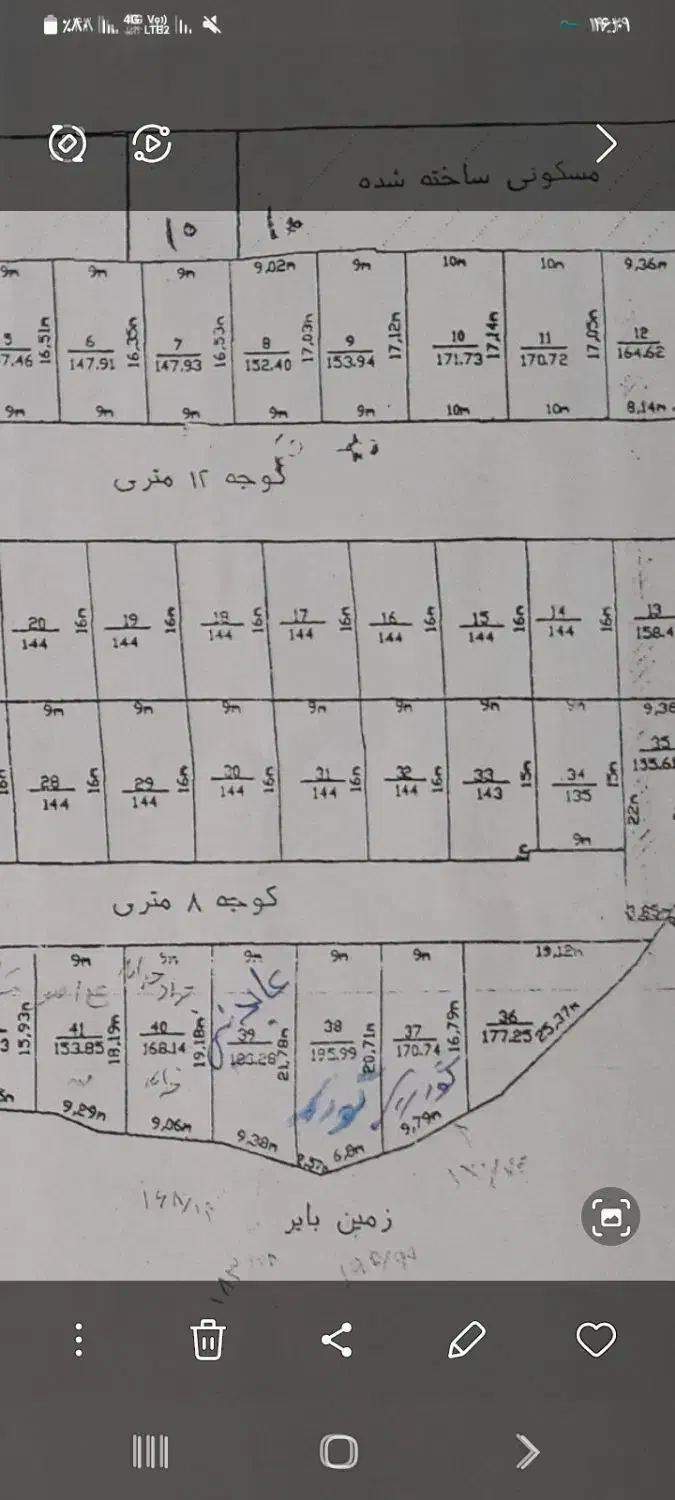 4G Vo)) LTE2
مسکونی ساخته شده
10
9m 9m 9m 9,02m 9m 10m 10m 9,36m
16,51m 16,35m 16,53m 17,03m 17,12m 17,14m 17,05m
5 6 7 8 9 10 11 12
7.46 147.91 147.93 152.40 153.94 171.73 170.72 164.62
9m 9m 9m 9m 9m 10m 10m 8,14m
کوچه ۱۲ متری
20 19 18 17 16 15 14 13
144 144 144 144 144 144 144 158.4
16m 16m 16m 16m 16m 16m 16m
9m 9m 9m 9m 9m 9m 9m 9,38
28 29 30 31 32 33 34 35
144 144 144 144 144 143 135 135.6
16m 16m 16m 16m 16m 16m 15m 15m 22m
9m
کوچه ۸ متری
9m 9m 9m 9m 9m 19,12m
41 40 39 38 37 36
153.85 168.14 183.28 195.99 170.74 177.25
15,93m 18,19m 19,18m 21,78m 20,71m 16,79m 25,37m
9,29m 9,06m 9,38m 2,57m 6,8m 9,79m
زمین بایر